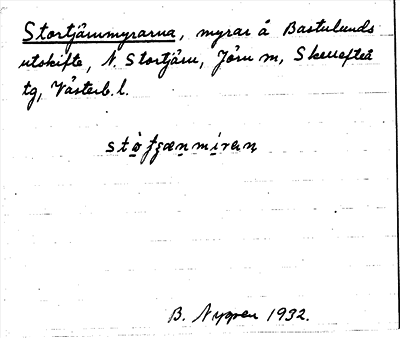 Stortjärnmyrarna, myrar å Bastulunds
utskifte, N. Stortjärn, Jörn m, Skellefteå
tg, Västerb. l.
B. Nygren 1932.